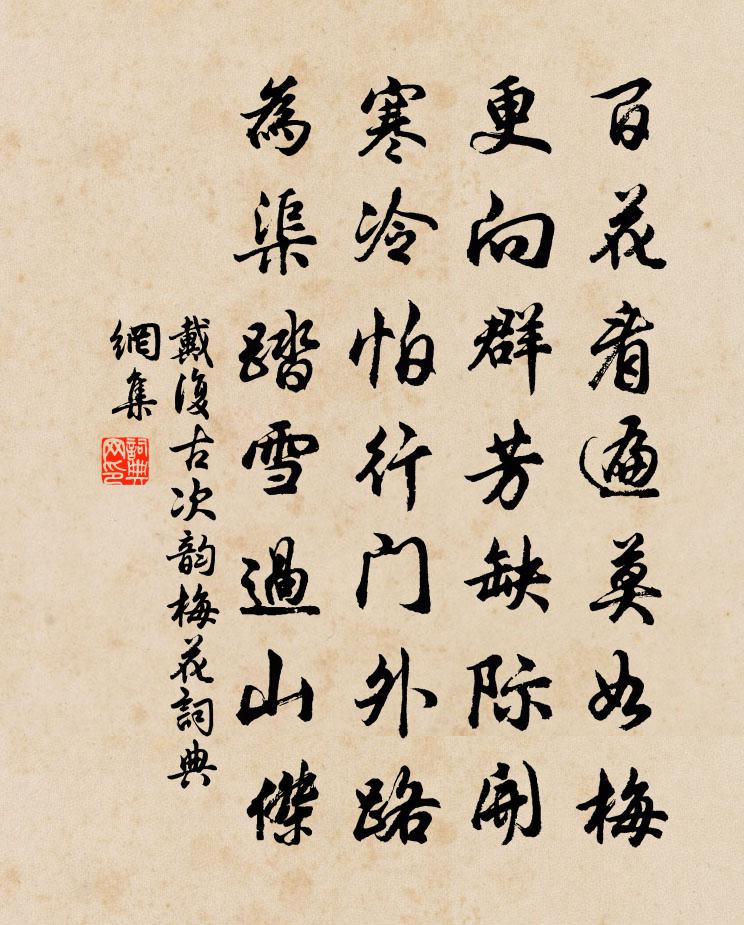 百花看遍莫如梅
更向群芳缺际開
寒冷怕行门外路
為渠踏雪過山傑
戴復古次韵梅花詞典
網集
詞典
网印